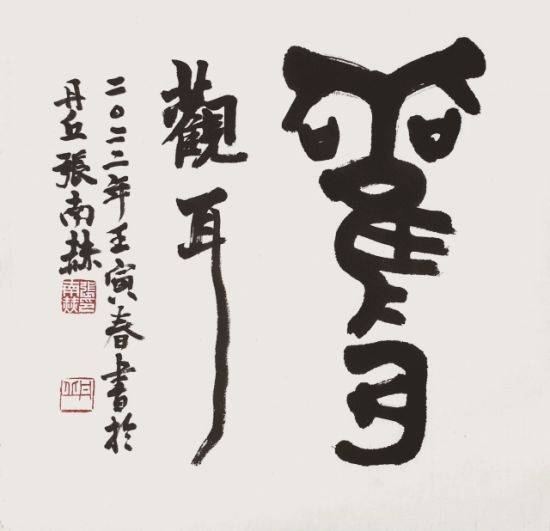 雚耳
觀耳
二〇二二年壬寅春書於
丹丘張南
丹丘